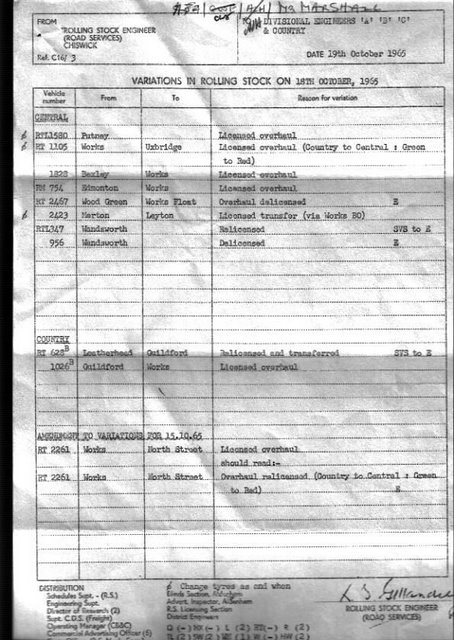 A/H / MR MARSHALL
FROM
ROLLING STOCK ENGINEER
(ROAD SERVICES)
CHISWICK
Ref. C16/ 3
TO DIVISIONAL ENGINEERS 'A' 'B' 'C'
& COUNTRY
DATE 19th October 1965
VARIATIONS IN ROLLING STOCK ON 18TH OCTOBER, 1965
Vehicle number From To Reason for variation
CENTRAL
RTL1580 Putney Licensed overhaul
RT 1105 Works Uxbridge Licensed overhaul (Country to Central : Green
to Red)
1828 Bexley Works Licensed overhaul
RM 754 Edmonton Works Licensed overhaul
RT 2467 Wood Green Works Float Overhaul delicensed E
2423 Merton Leyton Licensed transfer (via Works BO)
RTL347 Wandsworth Relicensed SVS to E
956 Wandsworth Delicensed E
COUNTRY
RT 628B Leatherhead Guildford Relicensed and transferred SVS to E
1026B Guildford Works Licensed overhaul
AMENDMENT TO VARIATIONS FOR 15.10.65
RT 2261 Works North Street Licensed overhaul
should read:-
RT 2261 Works North Street Overhaul relicensed (Country to Central : Green
to Red) E
DISTRIBUTION
Schedules Supt. - (R.S.)
Engineering Supt.
Director of Research (2)
Supt. C.D.S. (Freight)
Operating Manager (CB&C)
Commercial Advertising Officer (5)
Change tyres as and when
Blinds Section, Aldenham
Advert. Inspector, Aldenham
R.S. Licensing Section
District Engineers
ROLLING STOCK ENGINEER
(ROAD SERVICES)